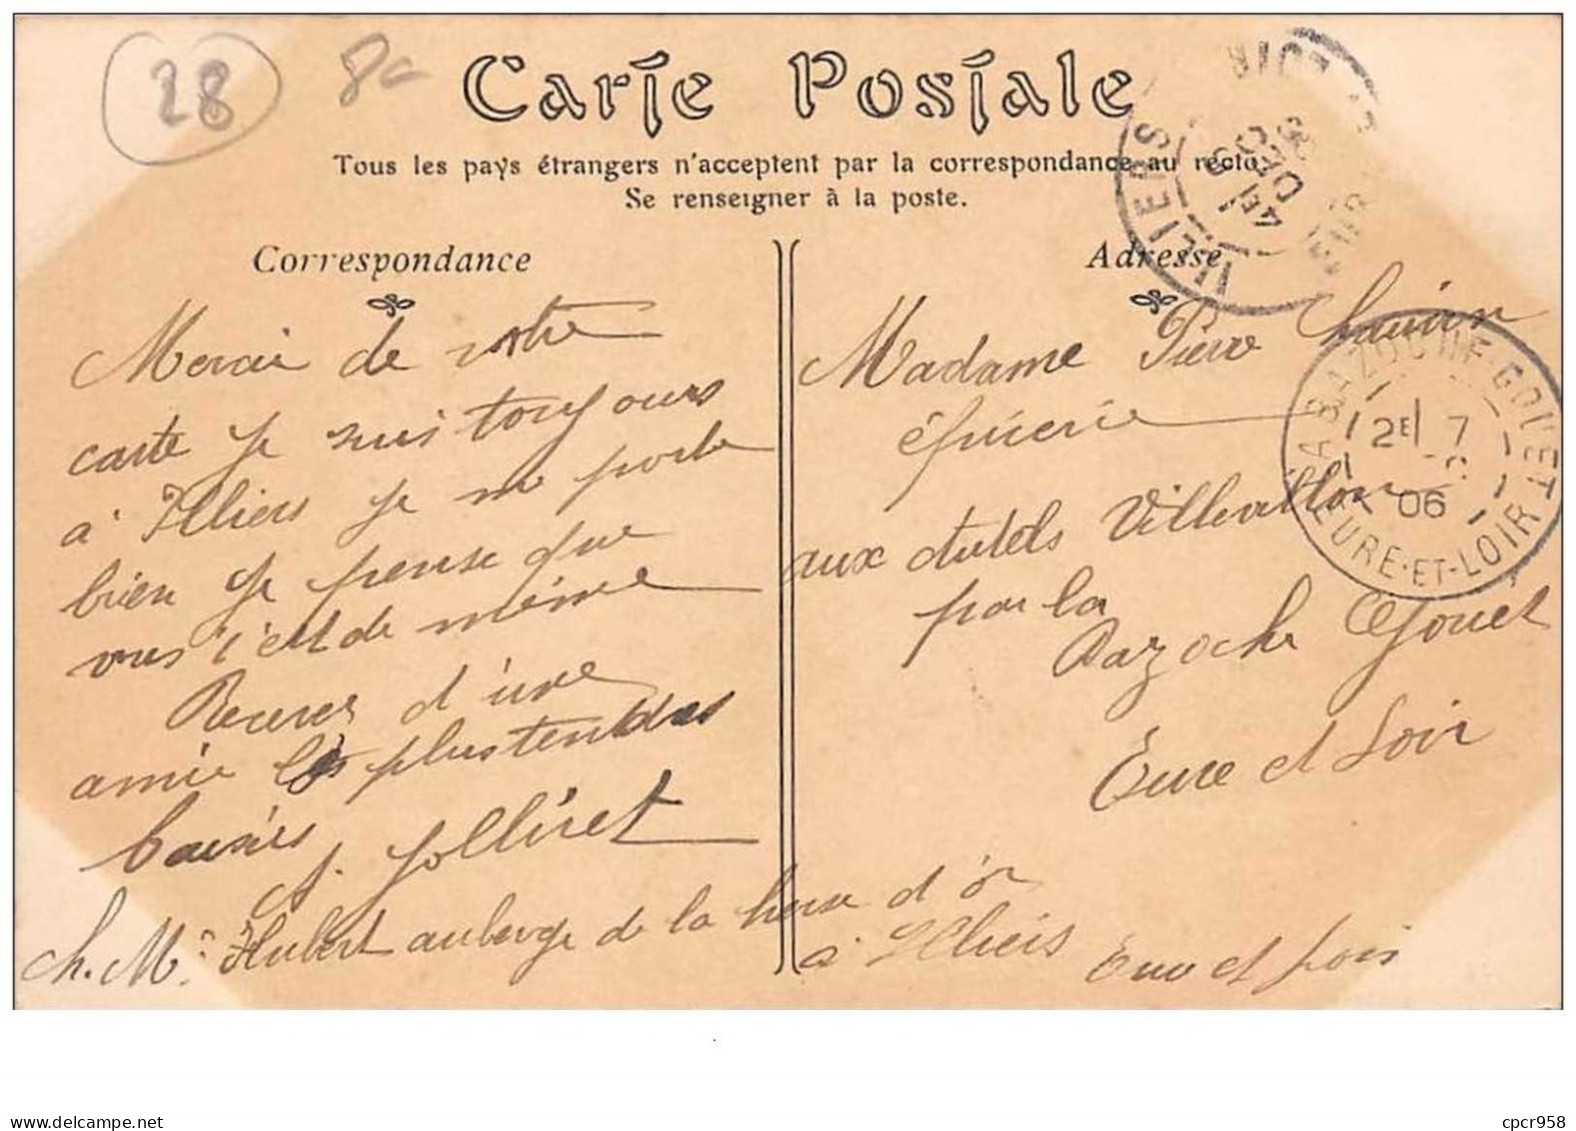 28
Carte Postale
Tous les pays étrangers n'acceptent par la correspondance au recto
Se renseigner à la poste.
Correspondance
Mercie de votre
carte je suis toujours
à Illiers je me porte
bien je pense que
vous s'est de même
Recevez d'une
amie les plus tendres
baisers
A. Jolliret
ch. Mr Hubert auberge de la herse d'or
à Illiers Eure et Loir
Adresse
Madame Pierre
épicerie
aux autels Villevillon
par la
Bazoche Gouët
Eure et Loir
ILLIERS
4E
DEC
LA BAZOCHE-GOUET
2E 7
06
EURE-ET-LOIR
cpcr958